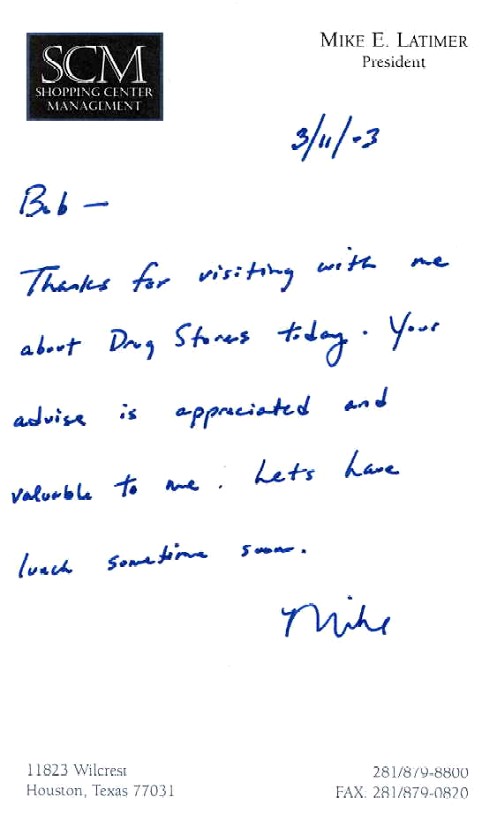 SCM
SHOPPING CENTER
MANAGEMENT
MIKE E. LATIMER
President
3/11/03
Bob —
Thanks for visiting with me
about Drug Stores today. Your
advise is appreciated and
valuable to me. Let's have
lunch sometime soon.
Mike
11823 Wilcrest
Houston, Texas 77031
281/879-8800
FAX: 281/879-0820